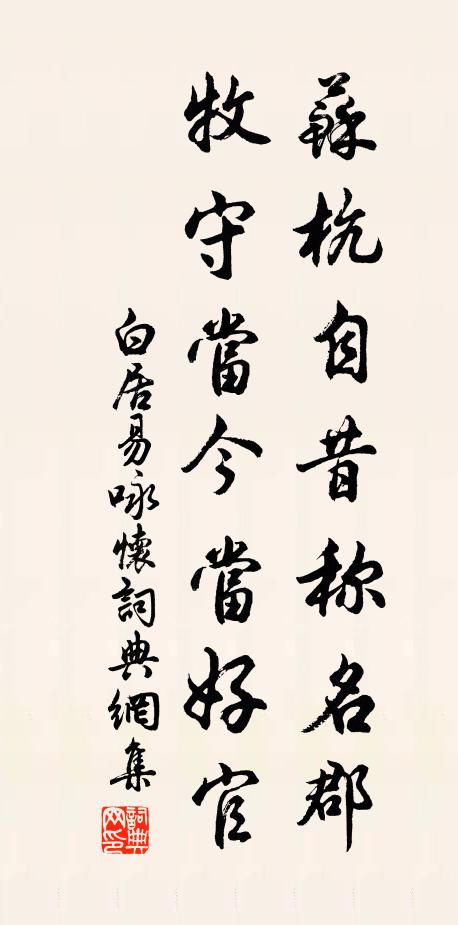 蘇杭自昔称名郡
牧守當今當好官
白居易咏懷詞典網集
詞典网印